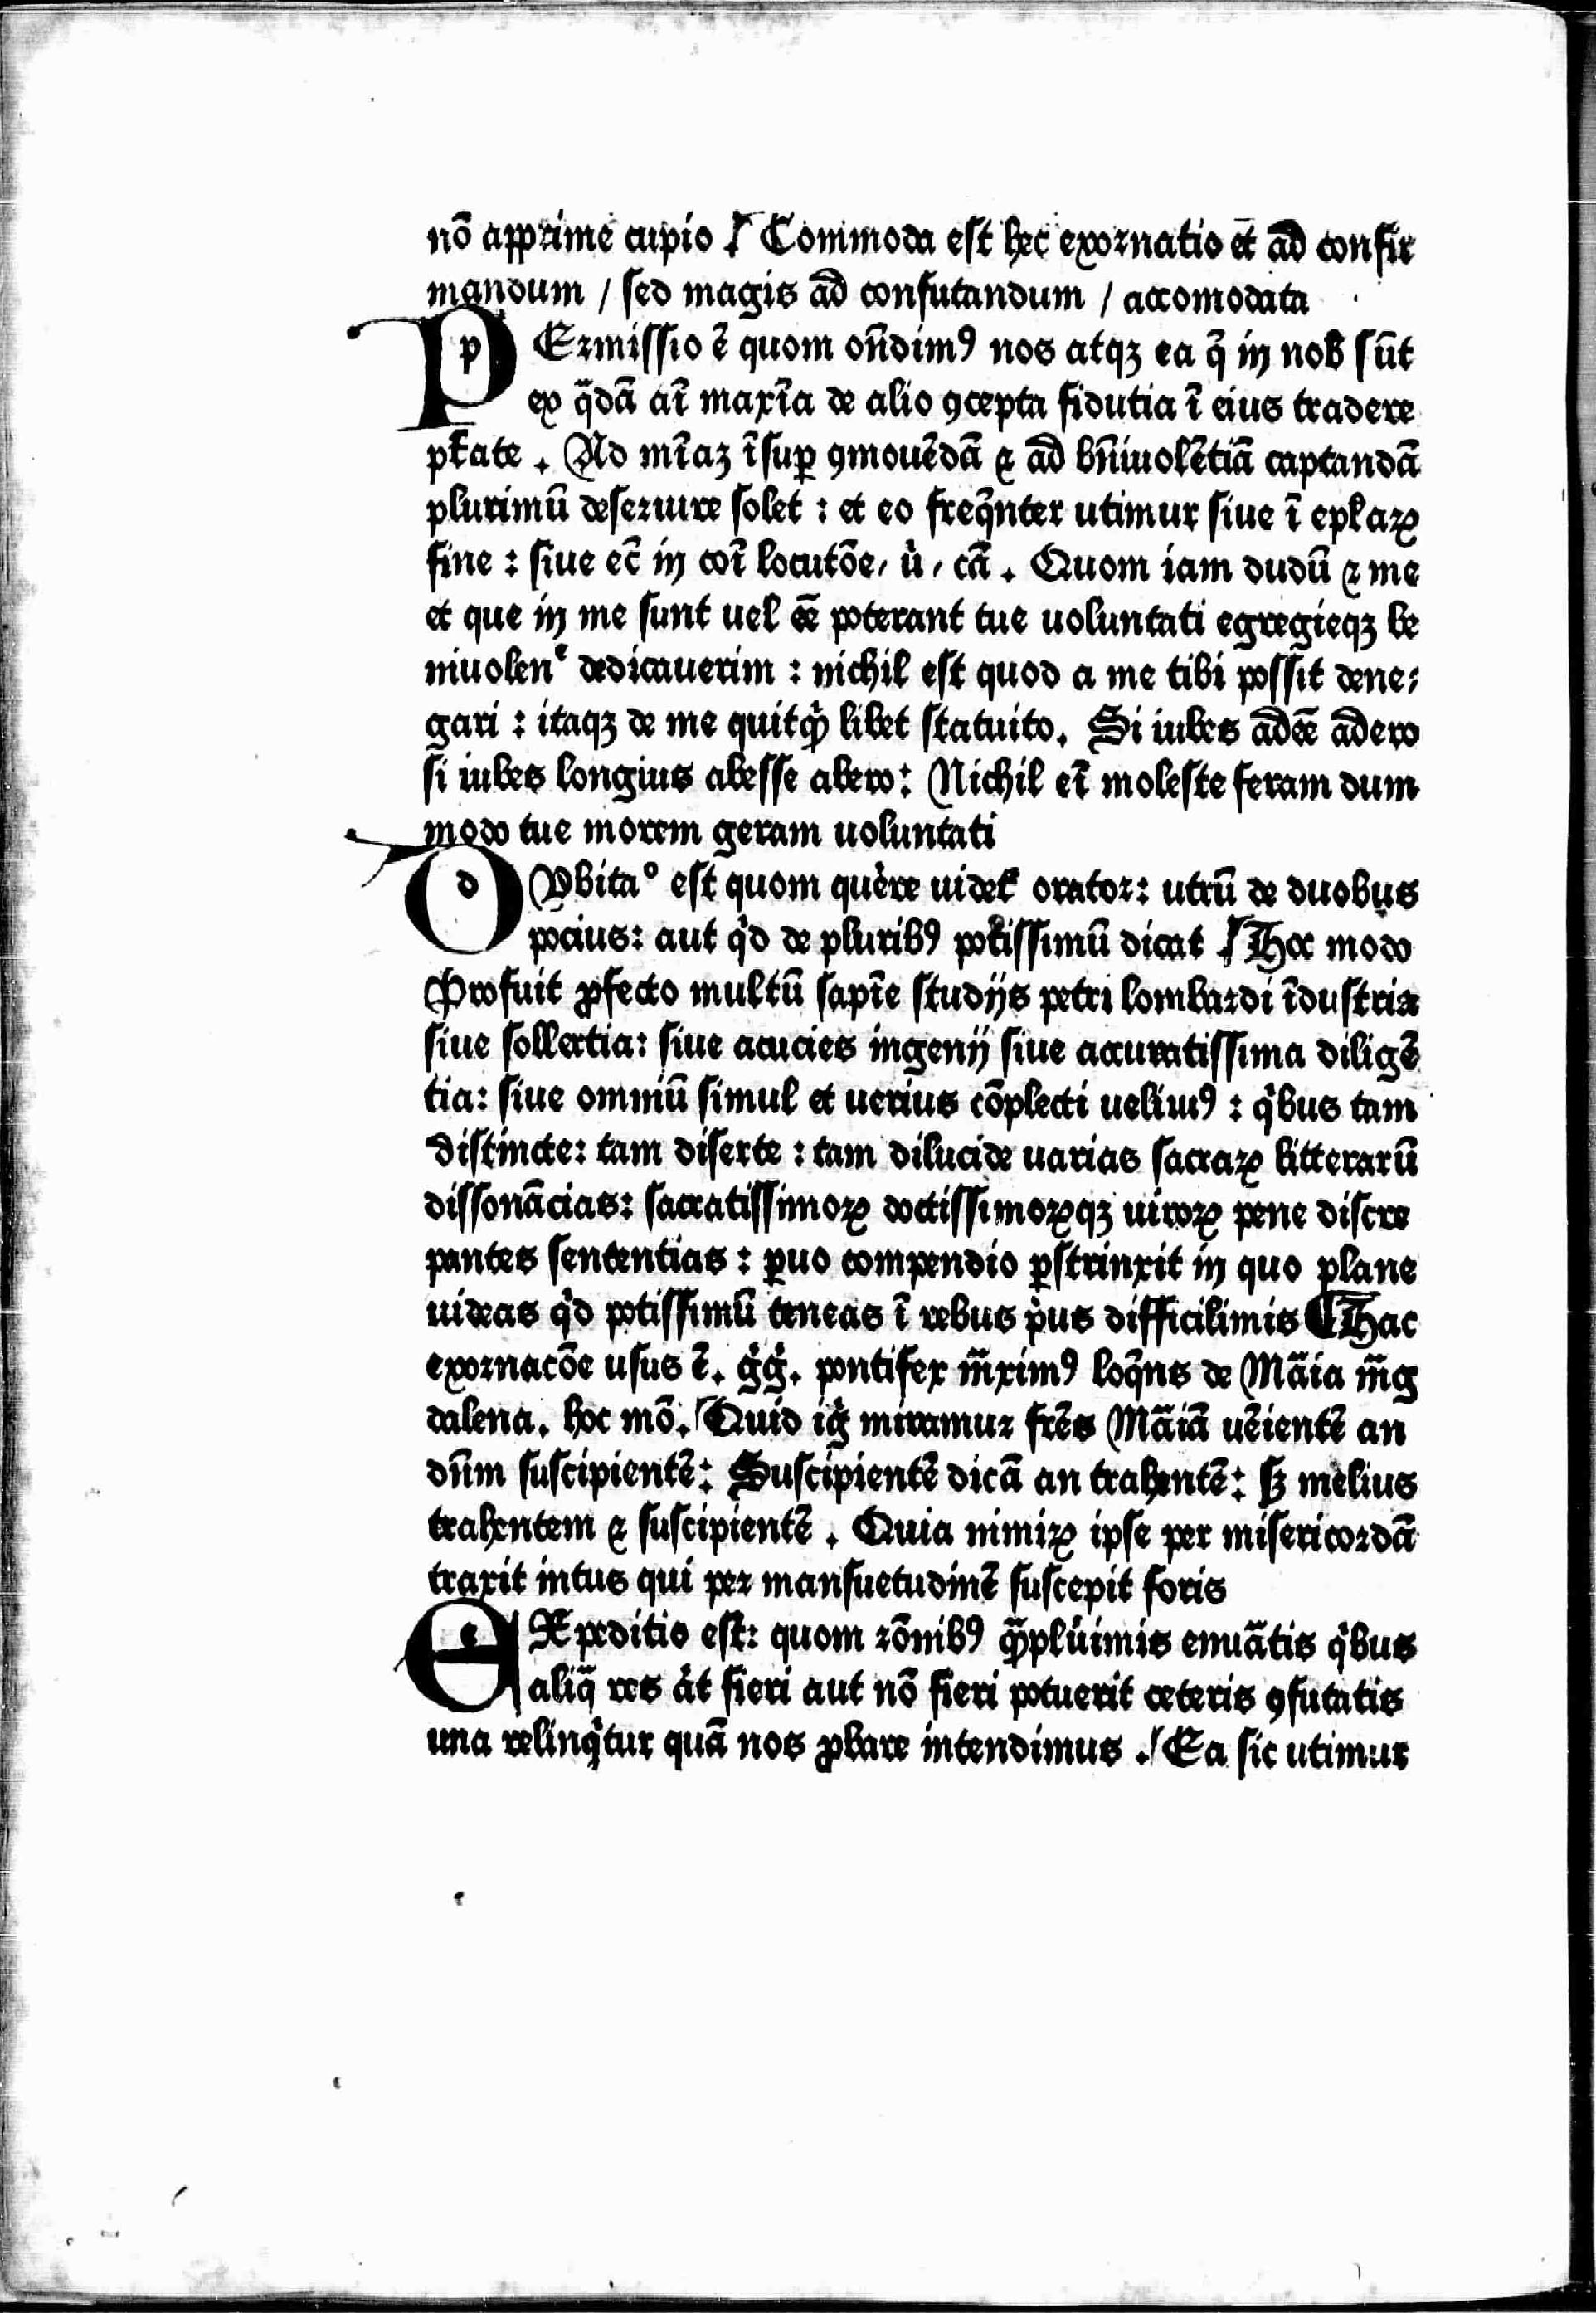 nō apprime cupio ⸿ Commoda est hec exornatio et̄ ad confir
mandum / sed magis ad confutandum / accomodata
PErmissio ē quom on̄dimꝰ nos atqꝫ ea q̄ in nob̄ sūt
ex q̄dā ai̅ maxi̅a de alio ꝯcepta fidutia ī eius tradere
ptāte . Ad mi̅aꝫ īsuꝑ ꝯmouēdā ⁊ ad bn̄iuolētiā captandā
plurimū deseruire solet : et eo freq̄nter utimur siue ī epl̄aꝝ
fine : siue ec̄ in coi̅ locutōe, ů, cā . Quom iam dudū ⁊ me
et que in me sunt uel ēe poterant tue uoluntati egregieqꝫ be
niuolenᵉ dedicauerim : nichil est quod a me tibi possit dene⸗
gari : itaqꝫ de me quitqͥd libet statuito. Si iubes adēe adero
si iubes longius abesse abero: Nichil ei̅ moleste feram dum
modo tue morem geram uoluntati
DVbitaᵒ est quom quere᷑ uidet᷑ orator: utrū de duobus
pocius: aut qͥd de pluribꝰ potissimū dicat ⸿ Hoc modo
Profuit ꝓfecto multū sapīe studijs petri lombardi īdustria
siue sollertia: siue acucies ingenij siue accuratissima diligē
tia: siue omniū simul et uerius cōplecti uelimꝰ : qͥbus tam
distincte: tam diserte : tam dilucide uarias sacraꝝ litterarū
dissonācias: sacratissimoꝝ doctissimoꝝqꝫ uiroꝝ pene discre
pantes sententias : ꝑuo compendio ꝑstrinxit in quo plane
uideas qͥd potissimū teneas ī rebus pͥus difficilimis ⸿ Hac
exornacōe usus ē. gͦgͦ. pontifex m̄ximꝰ loq̄ns de Māia m̄g
dalena. hoc mō. Quid igͥ miramur fr̄es Māiā uēientē an
dn̄m suscipientē: Suscipientē dicā an trahentē: sꝫ melius
trahentem ⁊ suscipientē . Quia nimiꝝ ipse per misericordā
traxit intus qui per mansuetudinē suscepit foris
EXpeditio est: quom rōnibꝰ q̄pluͥimis enuātis qͥbus
aliq̄ res aͧt fieri aut nō fieri potuerit ceteris ꝯfutatis
una relinqͥtur quā nos ꝓbare intendimus . Ea sic utimur